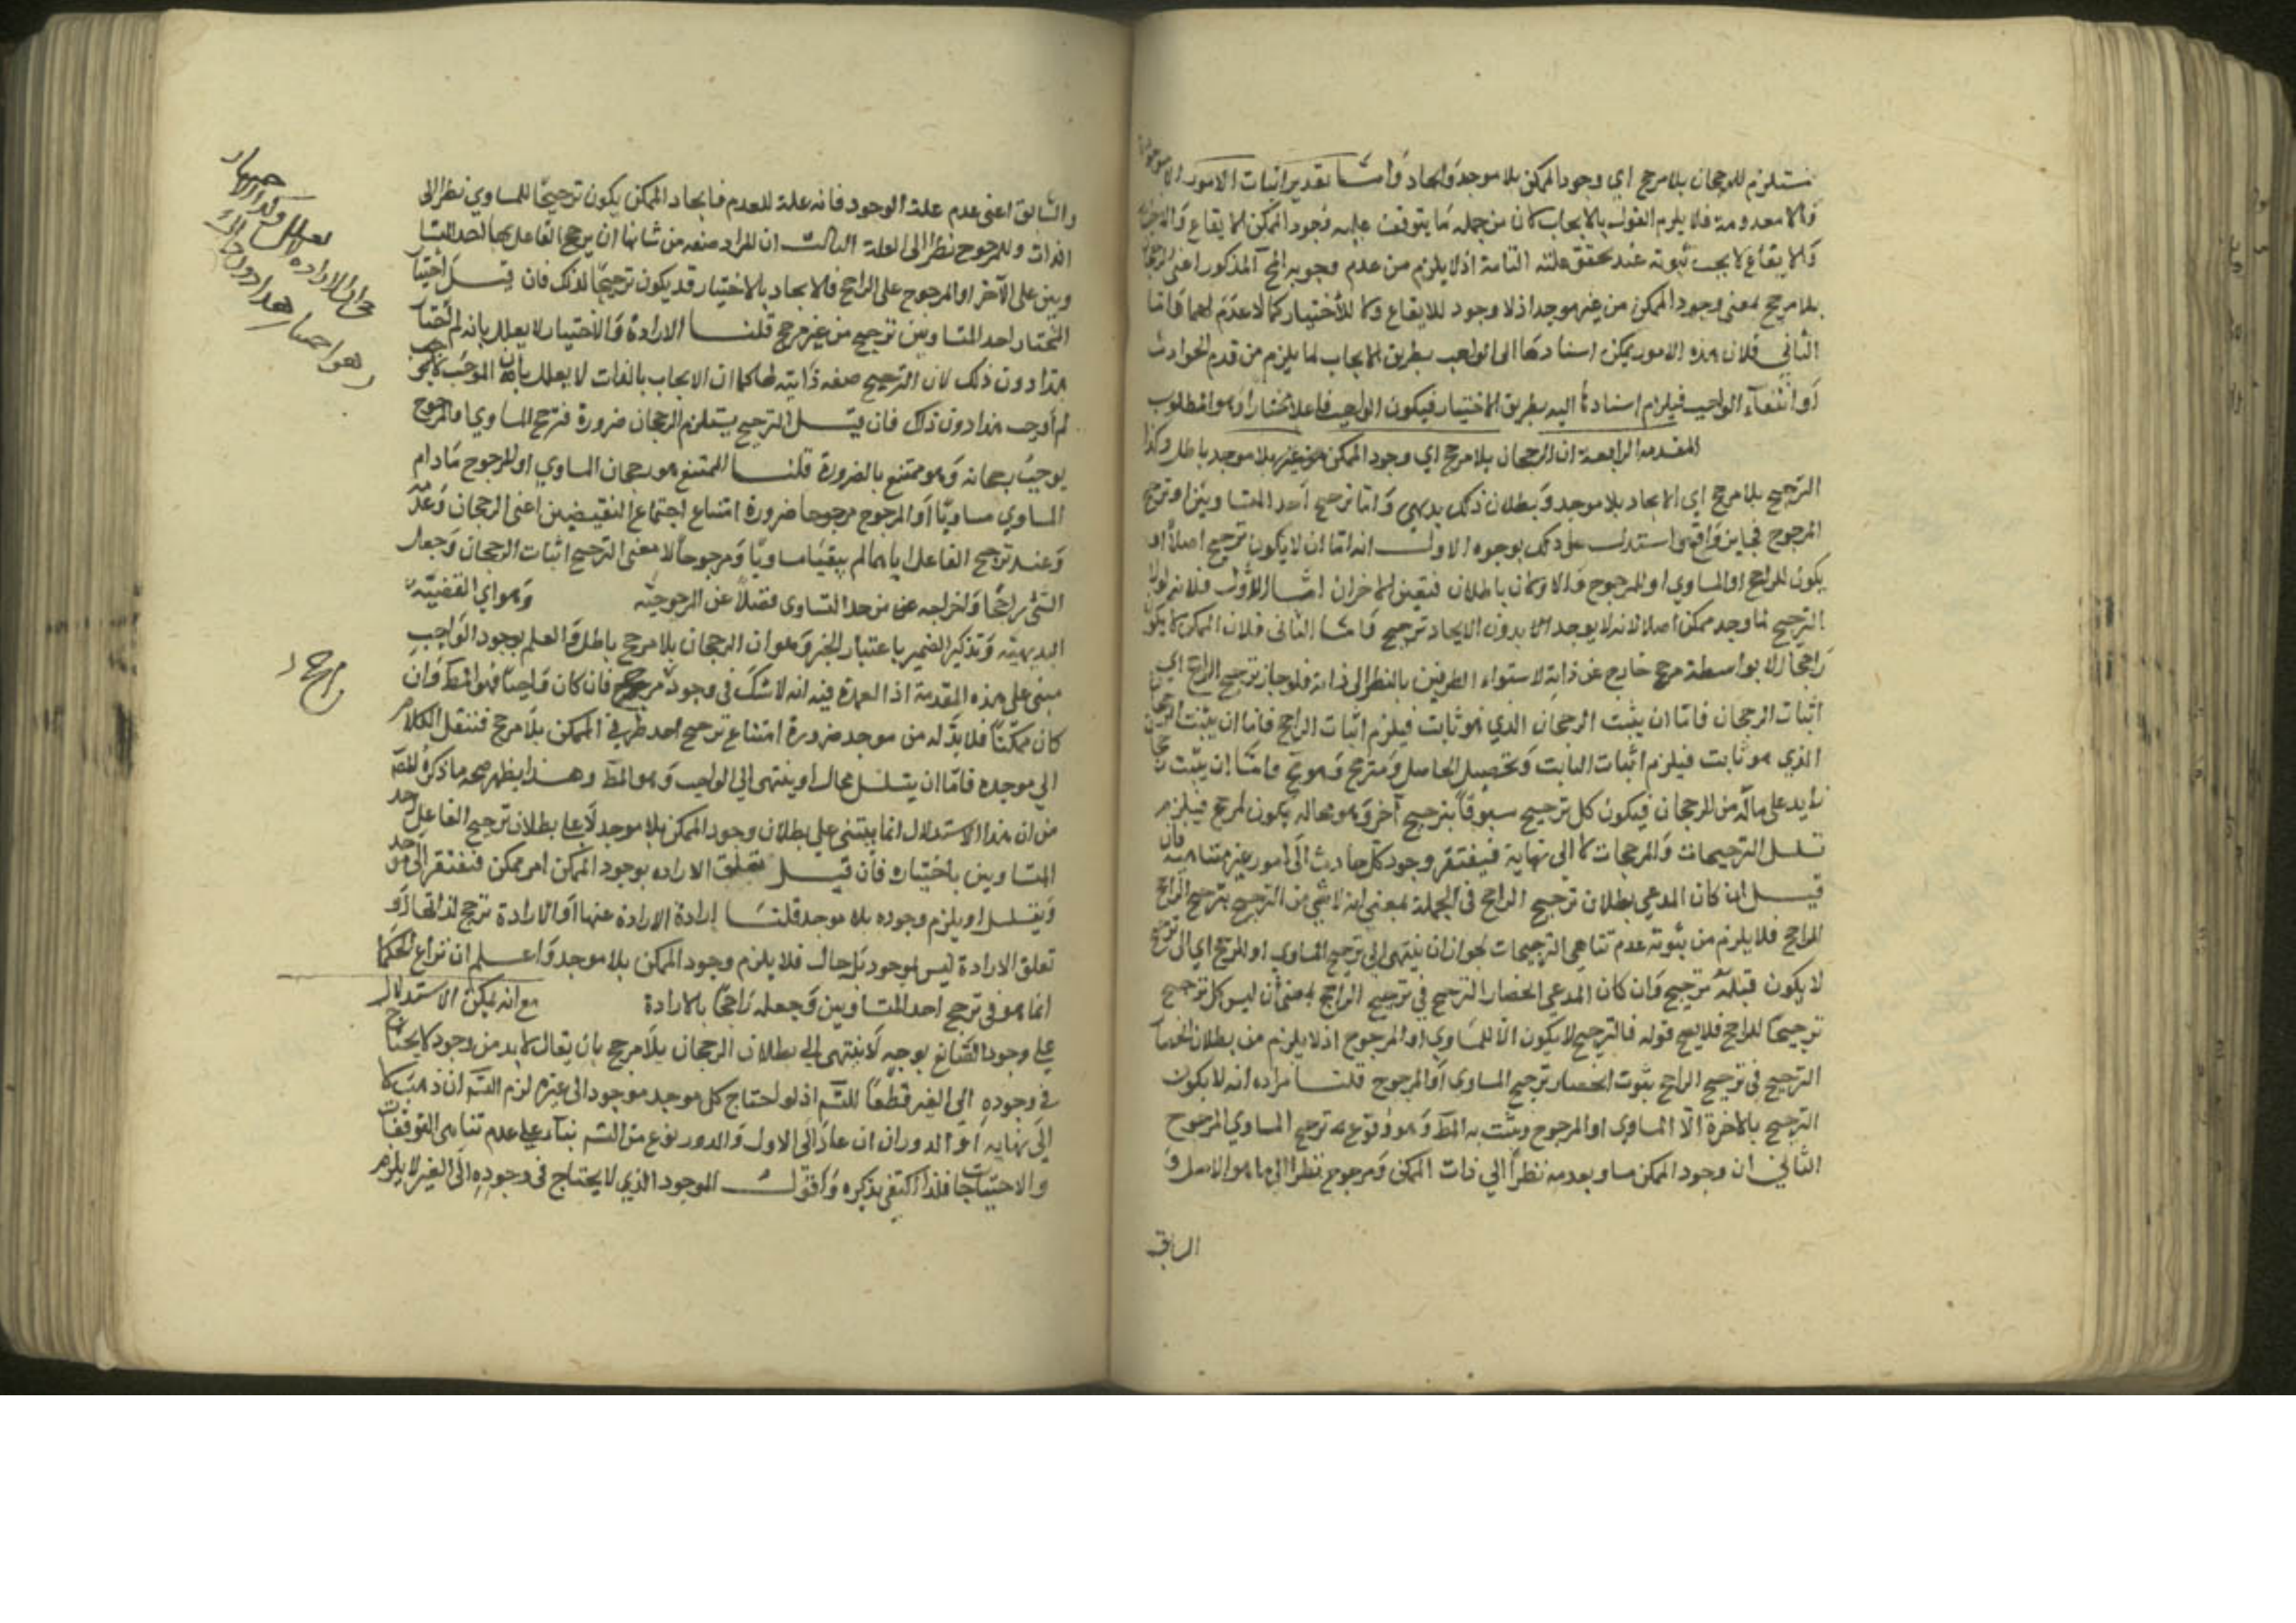 مستلزم للرجحان بلا مرجح اي وجود الممكن بلا موجد وايجاد واما تقدير اثبات الامور
ولا معدومة فلا يلزم القول بالايجاب كان من جملة ما يتوقف عليه وجود الممكن الايقاع
والايقاع لا يجب ثبوته عند تحقق علته التامة اذ لا يلزم من عدم وجوبه المح المذكور اعنى
بلا مرجح بمعنى وجود الممكن من غير موجد اذ لا وجود للايقاع ولا للاختيار كما لا عدم لهما واما
الثاني فلان هذه الامور يمكن اسنادها الى الواجب بطريق الايجاب لما يلزم من قدم الحوادث
او انتفاء الواجب فيلزم اسنادها اليه بطريق الاختيار فيكون الواجب فاعلا مختارا وهو المطلوب
المقدمة الرابعة ان الرجحان بلا مرجح اي وجود الممكن بلا موجد باطل وكذا
الترجيح بلا مرجح اي الايجاد بلا موجد وبطلان ذلك بديهي واما ترجيح احد المتساويين او ترجيح
المرجوح فجايز واقع استدل على ذلك بوجوه الاول انه اما ان لا يكون ترجيح اصلا او
يكون للراجح او المساوي او للمرجوح والاولان باطلان فتعين الاخران اما الاول فلانه لولا
الترجيح لما وجد ممكن اصلا لانه لا يوجد بدون الايجاد ترجيح واما الثانى فلان الممكن لا يكون
راجحا الا بواسطة مرجح خارج عن ذاته لاستواء الطرفين بالنظر الى ذاته فلو جاز ترجيح الراجح اي
اثبات الرجحان فاما ان يثبت الرجحان الذي هو ثابت فيلزم اثبات الراجح فاما ان يثبت الرجحان
الذي هو ثابت فيلزم اثبات الثابت وتحصيل الحاصل واما ان يثبت
زايد على ماله من الرجحان فيكون كل ترجيح مسبوقا بترجيح آخر يكون لمرجح فيلزم
تسلسل الترجيحات والمرجحات لا الى نهاية فيفتقر وجود كل حادث الى امور غير متناهية فان
قيل ان كان المدعي بطلان ترجيح الراجح فى الجملة بمعنى انه لا شي من الترجيح بترجيح الراجح
الراجح فلا يلزم من ثبوته عدم تناهي الترجيحات لجواز ان ينتهي الي ترجيح المساوي او المرجوح اي الى ترجيح
لا يكون قبله ترجيح وان كان المدعي انحصار الترجيح في ترجيح الراجح بمعنى ان ليس كل ترجيح
ترجيحا للراجح فلا يصح قوله فالترجيح لا يكون الا للمساوي او المرجوح اذ لا يلزم من بطلان انحصار
الترجيح فى ترجيح الراجح ثبوت انحصار ترجيح المساوي او المرجوح قلنا مراده انه لا يكون
الترجيح بالاخرة الا المساوي او المرجوح ويثبت به المط وهو وقوع ترجيح المساوي المرجوح
الثاني ان وجود الممكن مساو بعدمه نظرا الي ذات الممكن ومرجوح نظرا الي ما هو الاصل و
السابق
والسابق اعنى عدم علة الوجود فانه علة للعدم فايجاد الممكن يكون ترجيحا للمساوي نظرا الى
الذات وللمرجوح نظرا الى العلة الثالث ان الارادة صفة من شانها ان يرجح الفاعل بها احد المتسا
ويين على الآخر او المرجوح على الراجح فالايجاد بالاختيار قد يكون ترجيحا لذلك فان قيل اختيار
المختار احد المتساويين ترجيح من غير مرجح قلنا الارادة والاختيار لا يعلل بانه لم اختار
هذا دون ذلك لان الترجيح صفة ذاتية لها كما ان الايجاب بالذات لا يعلل بان الموجب
لم اوجب هذا دون ذلك فان قيل الترجيح يستلزم الرجحان ضرورة فترجيح المساوي او المرجوح
يوجب رجحانه وهو ممتنع بالضرورة قلنا الممتنع هو رجحان المساوي او المرجوح ما دام
المساوي مساويا او المرجوح مرجوحا ضرورة امتناع اجتماع النقيضين اعنى الرجحان وعدمه
وعند ترجيح الفاعل اياهما لم يبقيا مساويا ومرجوحا لا معنى الترجيح اثبات الرجحان وجعل
الشي راجحا واخراجه عن حد التساوى فضلا عن المرجوحية وهو اي القضية
البديهية وتذكير الضمير باعتبار الخبر وهو ان الرجحان بلا مرجح باطل والعلم بوجود الواجب
مبنى على هذه المقدمة اذ العمدة فيه انه لا شك فى وجود مرجح فان كان واجبا فهو المط وان
كان ممكنا فلا بد له من موجد ضرورة امتناع ترجيح احد طرفي الممكن بلا مرجح فننقل الكلام
الي موجده فاما ان يتسلسل محالا او ينتهى الي الواجب وهو المط وهذا يظهر صحة ما ذكره المصنف
من ان هذا الاستدلال انما يبتنى علي بطلان وجود الممكن بلا موجد لا علي بطلان ترجيح الفاعل احد
المتساويين باختياره فان قيل تعلق الارادة بوجود الممكن امر ممكن فتفتقر الى موجد
ويتسلسل او يلزم وجوده بلا موجد قلنا ارادة الارادة عينها او الارادة ترجح لذاتها او
تعلق الارادة ليس بموجود بل حال فلا يلزم وجود الممكن بلا موجد واعلم ان نزاع الحكما
انما هو فى ترجيح احد المتساويين وجعله راجحا بالارادة مع انه يمكن الاستدلال
علي وجود الصانع بوجه لا ينتهي الي بطلان الرجحان بلا مرجح بان يقال لا بد من وجود لا يحتاج
فى وجوده الي الغير قطعا للتسلسل اذ لو احتاج كل موجد موجود الى غيره لزم التسلسل ان ذهب لا
الى نهاية او الدور ان عاد الى الاول والدور نوع من التسلسل بناء علي عدم تناهي التوقفات
والاحتياجات فلذا اكتفى بذكره واقول الموجود الذي لا يحتاج فى وجوده الى الغير لا يلزم
مرجح